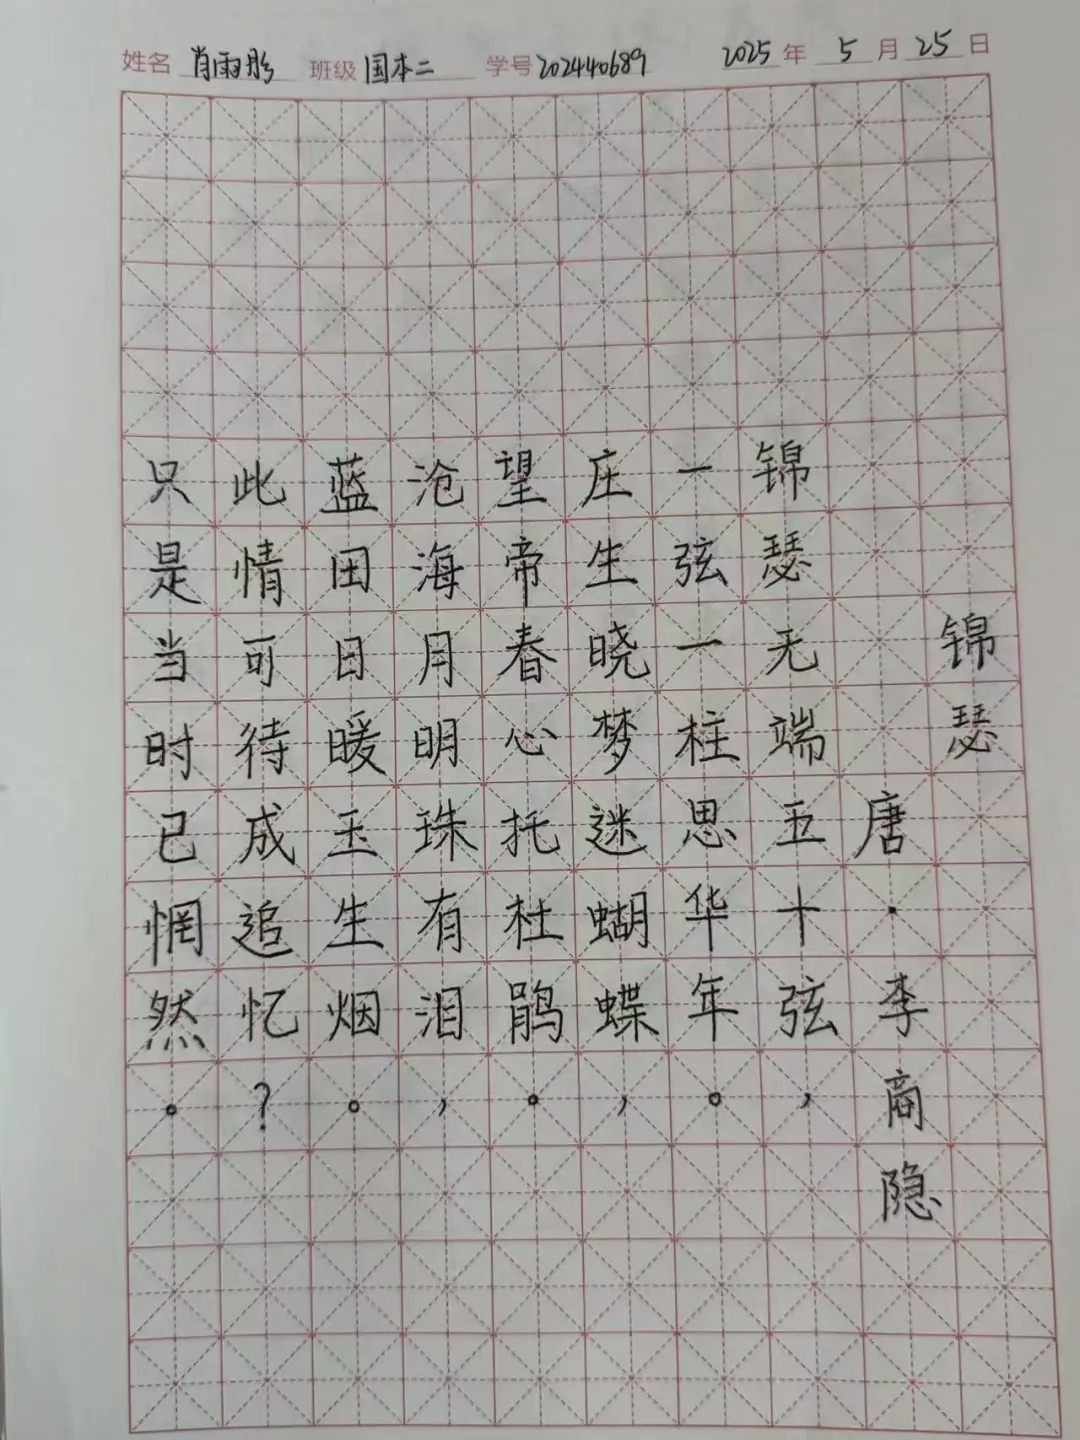 姓名 肖雨彤 班级 国本二 学号 202440689 2025 年 5 月 25 日
锦瑟
唐·李商隐
锦瑟无端五十弦，
一弦一柱思华年。
庄生晓梦迷蝴蝶，
望帝春心托杜鹃。
沧海月明珠有泪，
蓝田日暖玉生烟。
此情可待成追忆？
只是当时已惘然。